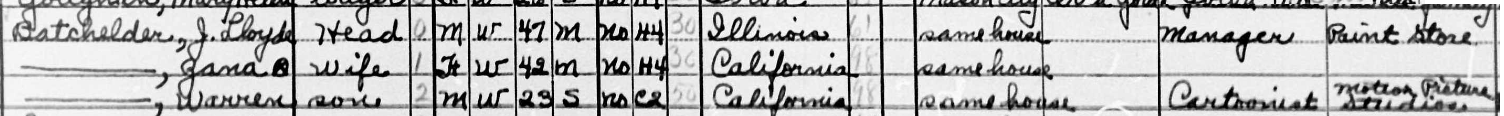 Batchelder, J. Lloyde Head 0 M W 47 M no H4 30 Illinois 61 same house Manager Paint Store
———, Jana wife 1 F W 42 M no H4 30 California 98 same house
———, Warren son 2 M W 23 S no C2 50 California 98 same house Cartoonist Motion Picture Studios